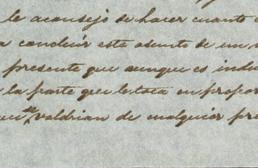 le aconsejo se hacer cuanto
a concluir este asunto de un
presente que aunque es indu
la parte que le toca en propor
valdrian de cualquier pre